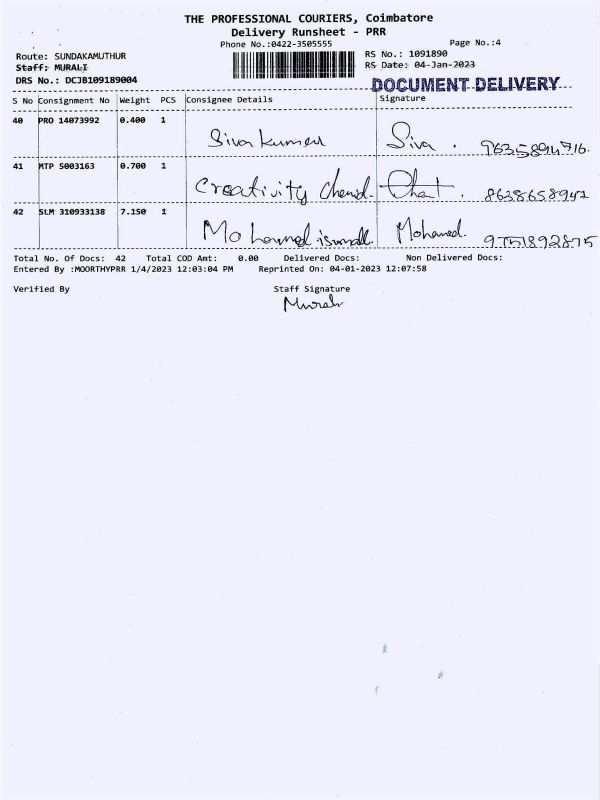 THE PROFESSIONAL COURIERS, Coimbatore
Delivery Runsheet - PRR
Phone No.:0422-3505555
Page No.:4
Route: SUNDAKAMUTHUR
RS No.: 1091890
Staff: MURALI
RS Date: 04-Jan-2023
DRS No.: DCJB109189004
DOCUMENT DELIVERY
S No Consignment No Weight PCS Consignee Details Signature
40 PRO 14073992 0.400 1
Siva kumar Siva .
41 MTP 5003163 0.700 1
Creativity 8638658947
42 SLM 310933138 7.150 1
Mohamed ismail. Mohamed. 9751892875
Total No. Of Docs: 42 Total COD Amt: 0.00 Delivered Docs: Non Delivered Docs:
Entered By :MOORTHYPRR 1/4/2023 12:03:04 PM Reprinted On: 04-01-2023 12:07:58
Verified By Staff Signature
Murali